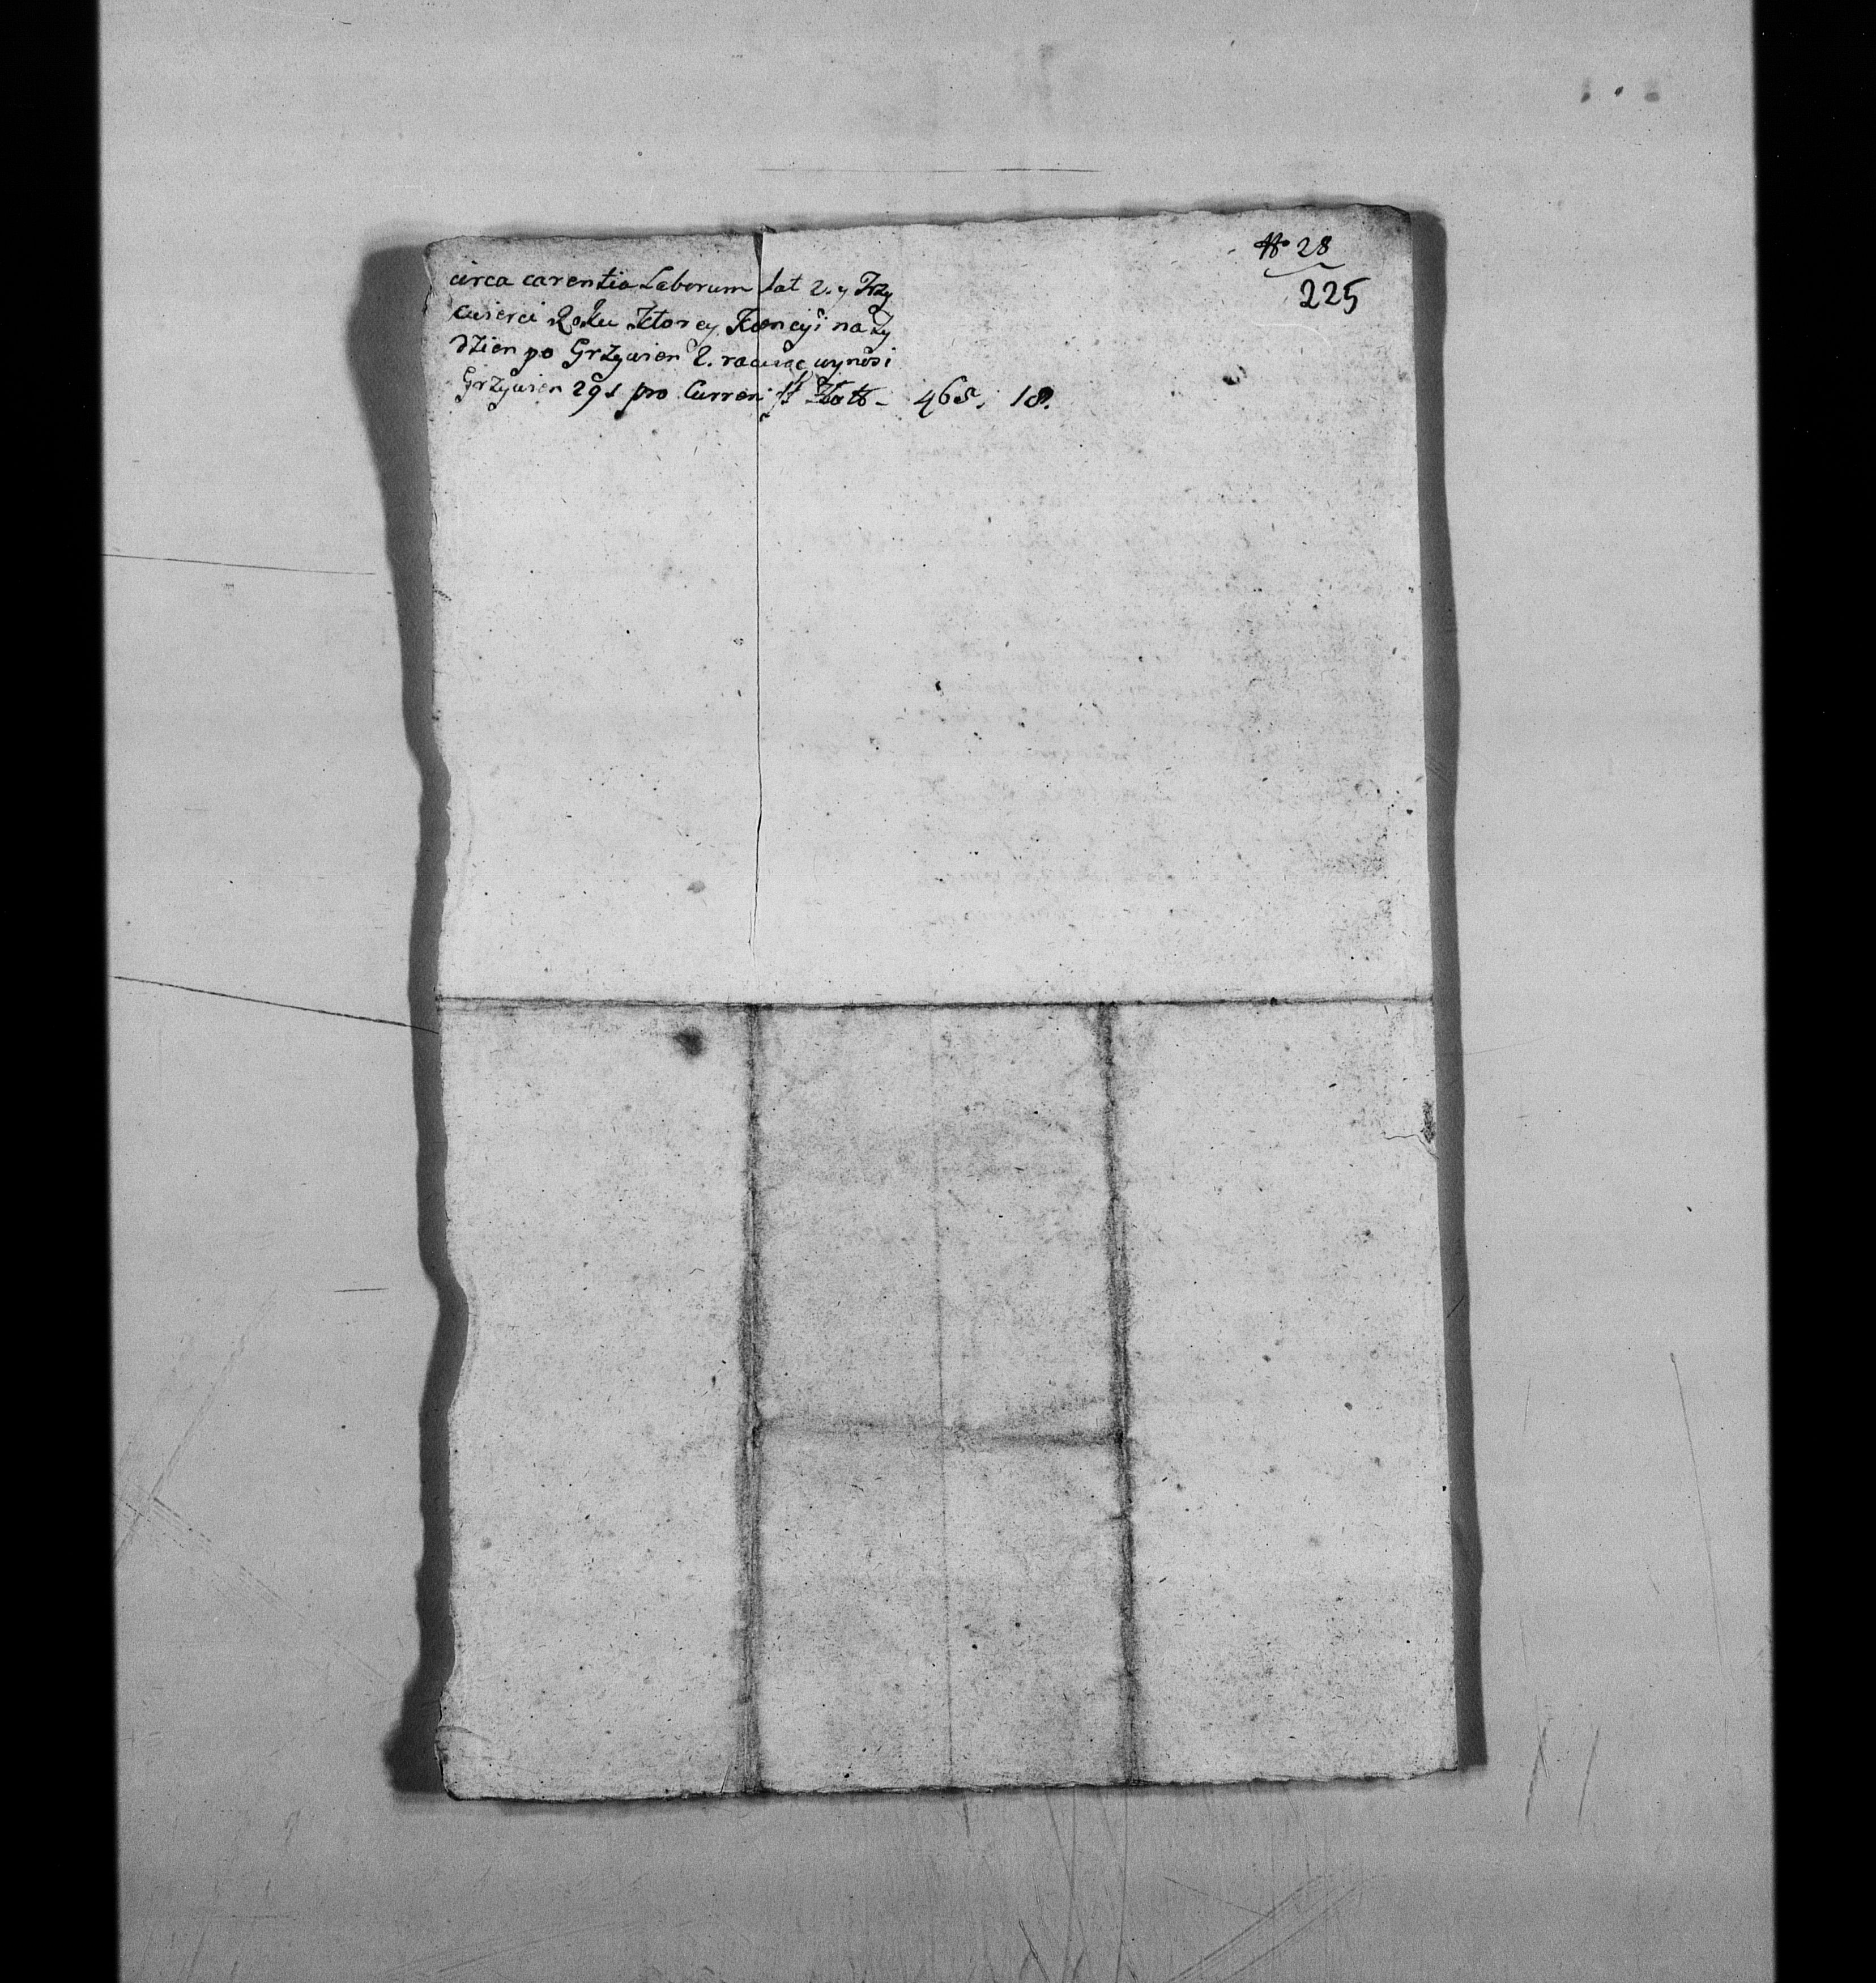 № 28
225
circa carentia Laborum Lat 2. y Trzy
Cwierci Roku Ktorey Kwencyi na Ty
dzien po Grzywien 2. rachuiąc wynosi
Grzywien 291 pro Curren ff Zło tt – 465. 18.